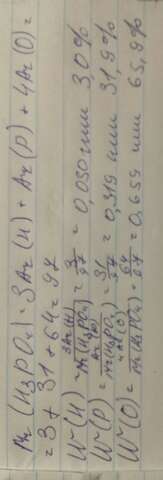 Mr (H₃PO₄) = 3Ar(H) + Ar(P) + 4Ar(O) =
= 3 + 31 + 64 = 98
W(H) = 3Ar(H) / Mr(H₃PO₄) = 3/98 = 0,030 или 3,0%
W(P) = Ar(P) / Mr(H₃PO₄) = 31/97 = 0,319 или 31,9%
W(O) = 4Ar(O) / Mr(H₃PO₄) = 64/97 = 0,659 или 65,9%